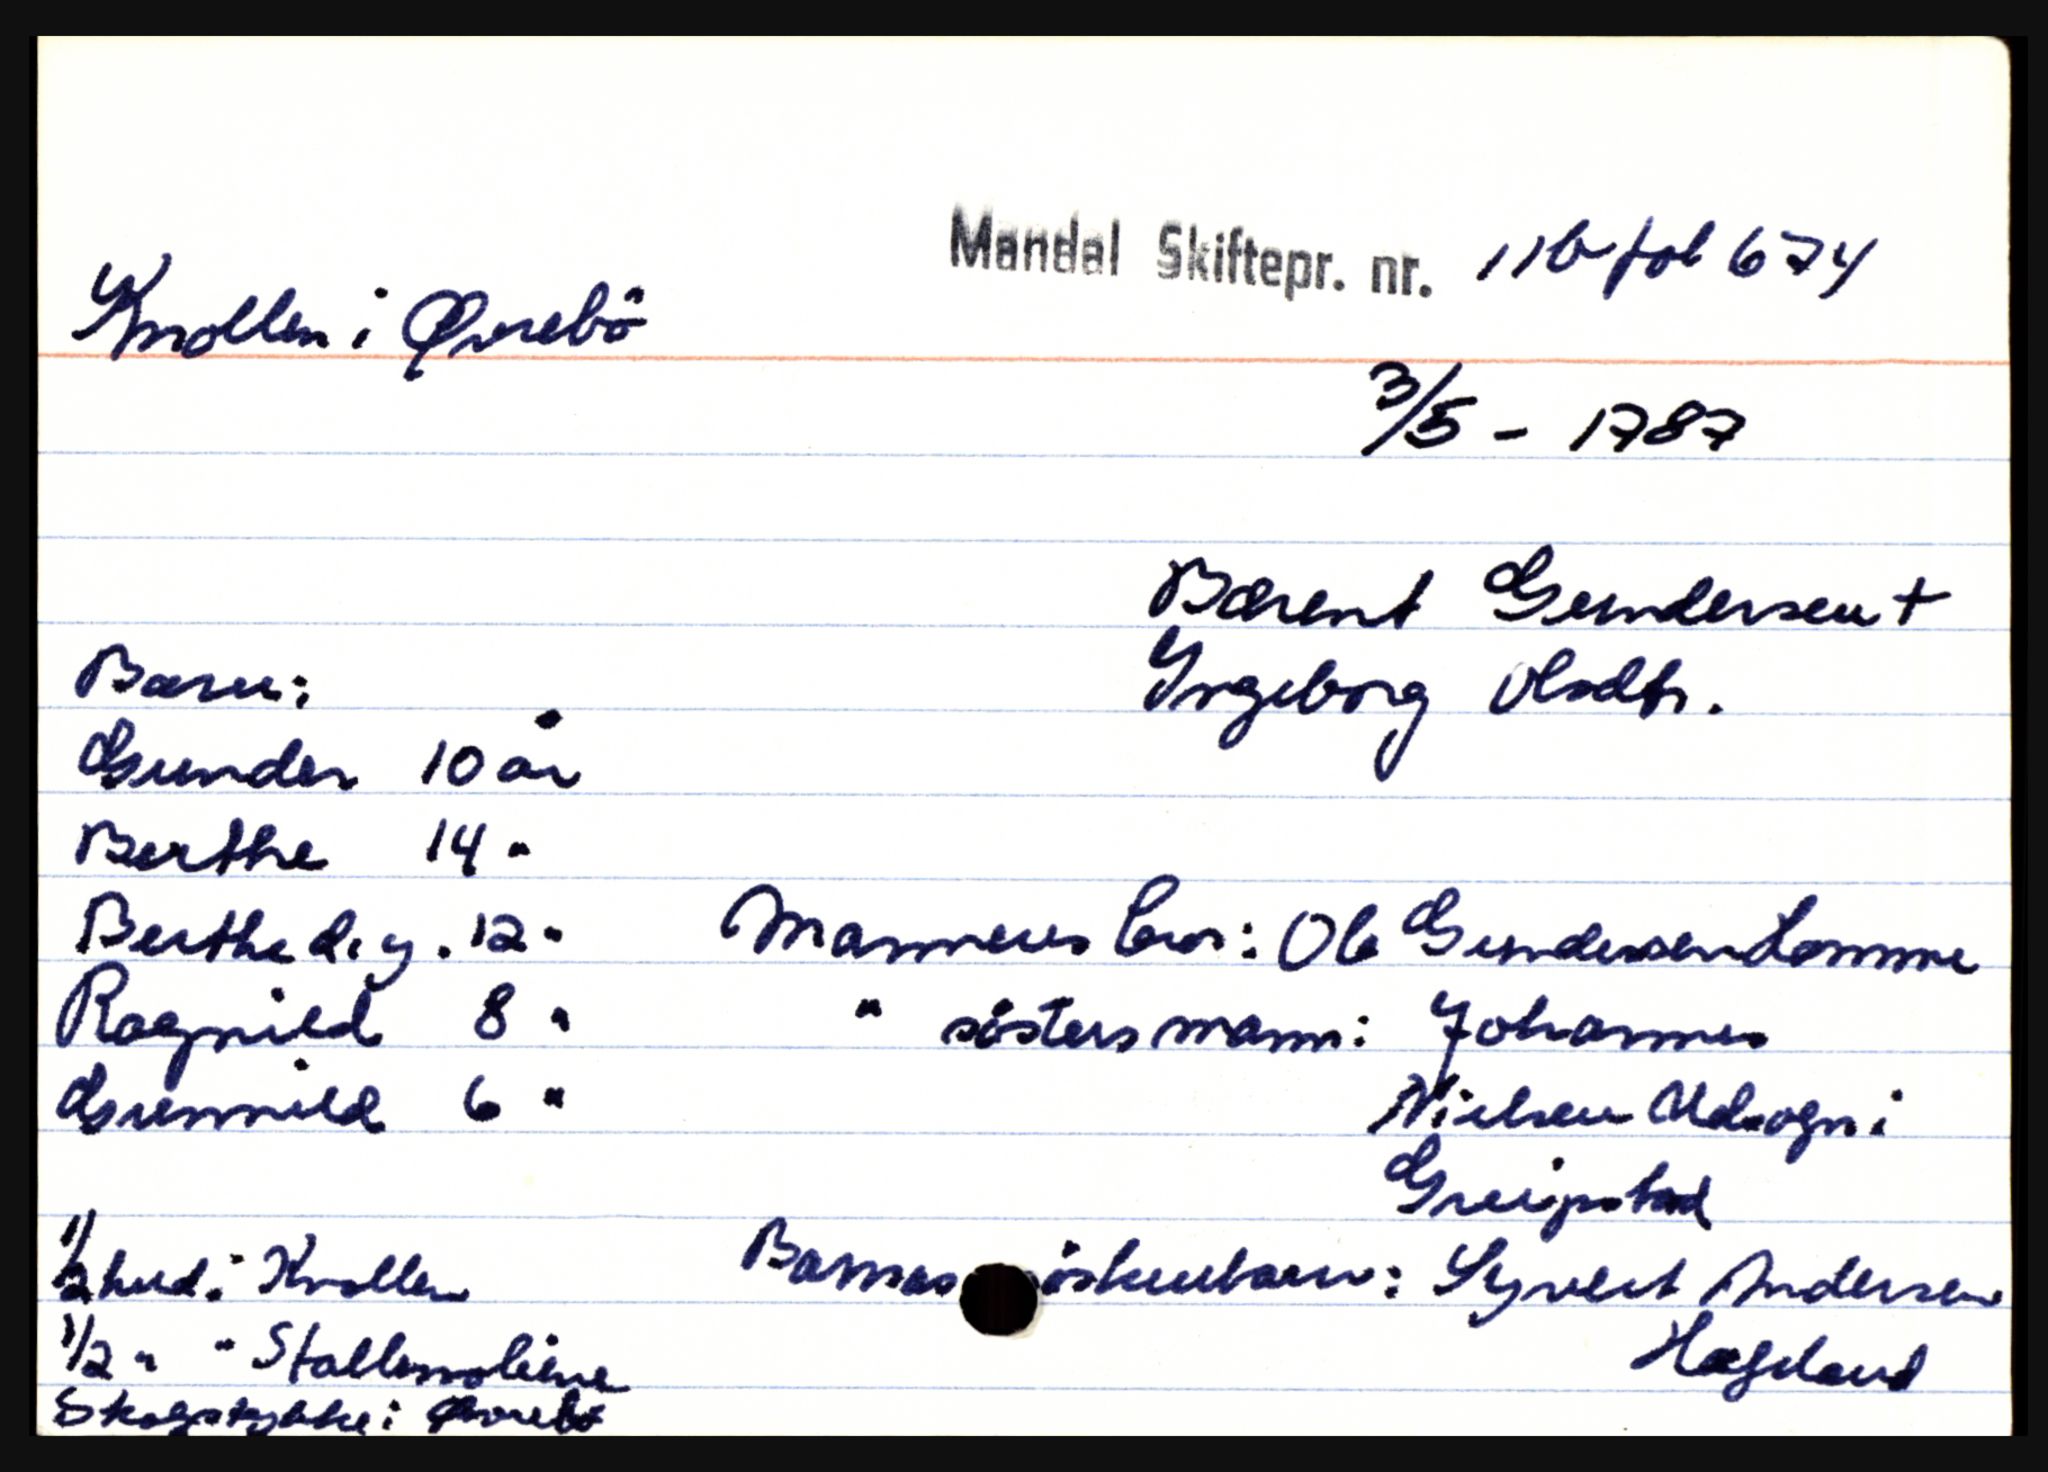 Mandal Skiftepr. nr. 11b fol 674
Knollen i Øvrebö
3/5 - 1787
Bærent Gundersen +
Yngeborg Olsdtr.
Barn:
Gunder 10 år
Berthe 14 "
Berthe d. y. 12 "
Mannens bror: Ole Gundersen Lomme
Ragnild 8 "
" södsters mann: Johannes
Gunnild 6 "
Nielsen Udsogn i
Greipstad
1/2 hud. i Knollen
Barnas söskenbarn: Syvert Andersen
1/2 " " Stallemoliene
Hægeland
Skogstykke i Øvrebö